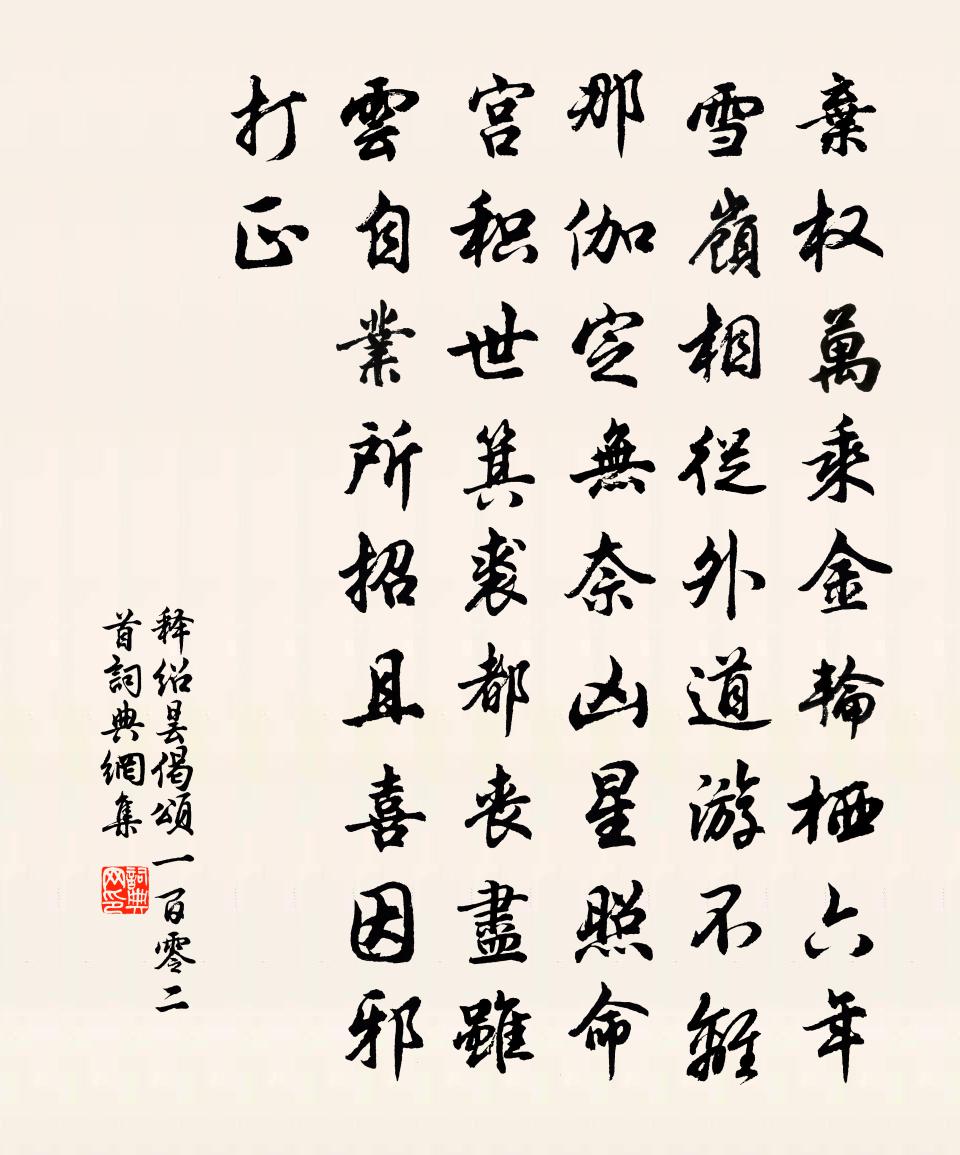 棄权萬乘金輪栖六年
雪嶺相從外道游不離
那伽定無奈凶星照命
宫积世箕裘都丧盡雖
雲自業所招且喜因邪
打正
释绍昙偈頌一百零二
首詞典網集
詞典
网印